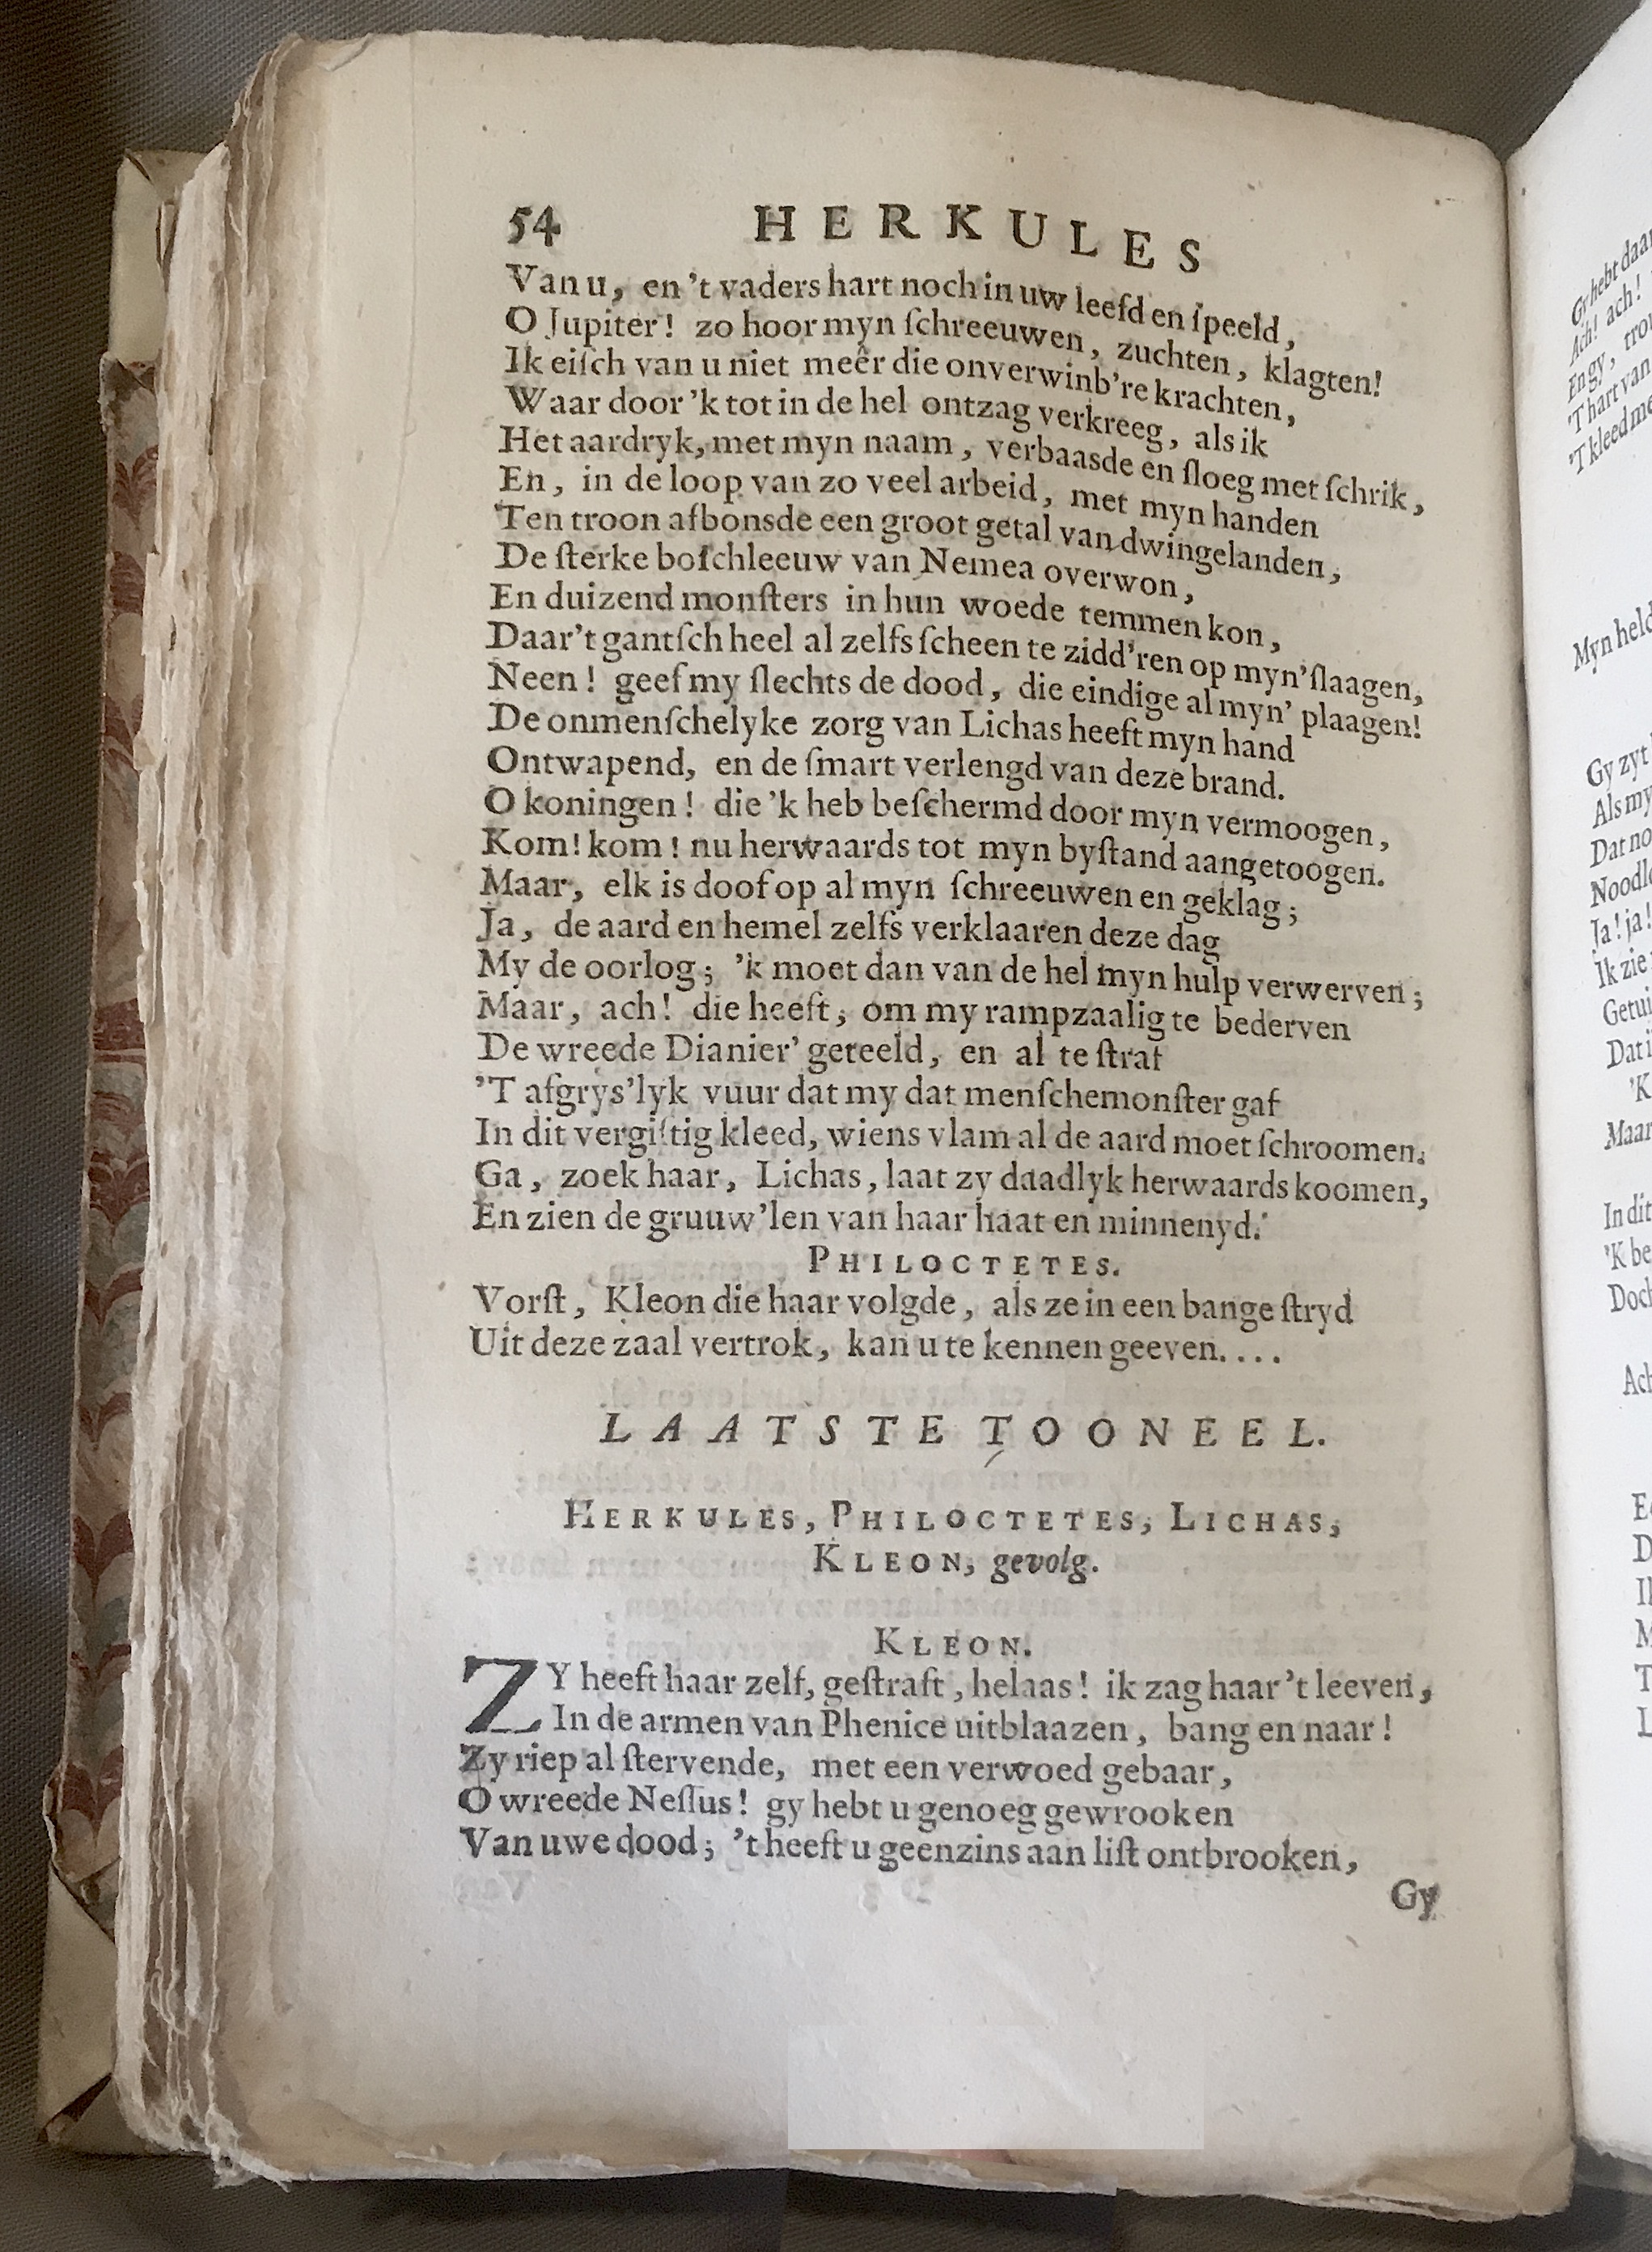 54 HERKULES
Van u, en 't vaders hart noch in uw leefd en ſpeeld,
O Jupiter! zo hoor myn ſchreeuwen, zuchten, klagten!
Ik eiſch van u niet meêr die onverwinb're krachten,
Waar door 'k tot in de hel ontzag verkreeg, als ik
Het aardryk, met myn naam, verbaasde en ſloeg met ſchrik,
En, in de loop van zo veel arbeid, met myn handen
'Ten troon afbonsde een groot getal van dwingelanden,
De ſterke boſchleeuw van Nemea overwon,
En duizend monſters in hun woede temmen kon,
Daar't gantſch heel al zelfs ſcheen te zidd'ren op myn' ſlaagen,
Neen! geef my ſlechts de dood, die eindige al myn' plaagen!
De onmenſchelyke zorg van Lichas heeft myn hand
Ontwapend, en de ſmart verlengd van deze brand.
O koningen! die 'k heb beſchermd door myn vermoogen,
Kom! kom! nu herwaards tot myn byſtand aangetoogen.
Maar, elk is doof op al myn ſchreeuwen en geklag;
Ja, de aard en hemel zelfs verklaaren deze dag
My de oorlog; 'k moet dan van de hel myn hulp verwerven;
Maar, ach! die heeft, om my rampzaalig te bederven
De wreede Dianier' geteeld, en al te ſtraf
'T afgrys'lyk vuur dat my dat menſchemonſter gaf
In dit vergiſtig kleed, wiens vlam al de aard moet ſchroomen.
Ga, zoek haar, Lichas, laat zy daadlyk herwaards koomen,
En zien de gruuw'len van haar haat en minnenyd.
PHILOCTETES.
Vorſt, Kleon die haar volgde, als ze in een bange ſtryd
Uit deze zaal vertrok, kan u te kennen geeven....
LAATSTE TOONEEL.
HERKULES, PHILOCTETES, LICHAS,
KLEON, gevolg.
KLEON.
ZY heeft haar zelf, geſtraft, helaas! ik zag haar 't leeven,
In de armen van Phenice uitblaazen, bang en naar!
Zy riep al ſtervende, met een verwoed gebaar,
O wreede Neſſus! gy hebt u genoeg gewrooken
Van uwe dood; 't heeft u geenzins aan liſt ontbrooken,
Gy
Gy hebt daar
Ach! ach!
En gy,
'T hart van
'T kleed
Myn held
Gy zyt
Als my
Dat no
Noodl
Ja! ja!
Ik zie
Getui
Dat i
'K
Maar
In dit
'K be
Doch
Ach